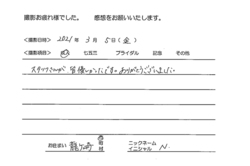 撮影お疲れ様でした。 感想をお願いいたします。
<撮影日時> 2021年 3月 5日(金)
<撮影項目> 成人 七五三 ブライダル 記念 その他
スタッフさんが皆優しかったです。ありがとうございました
お住まい 龍ケ崎 市 町 村 ニックネーム イニシャル N.